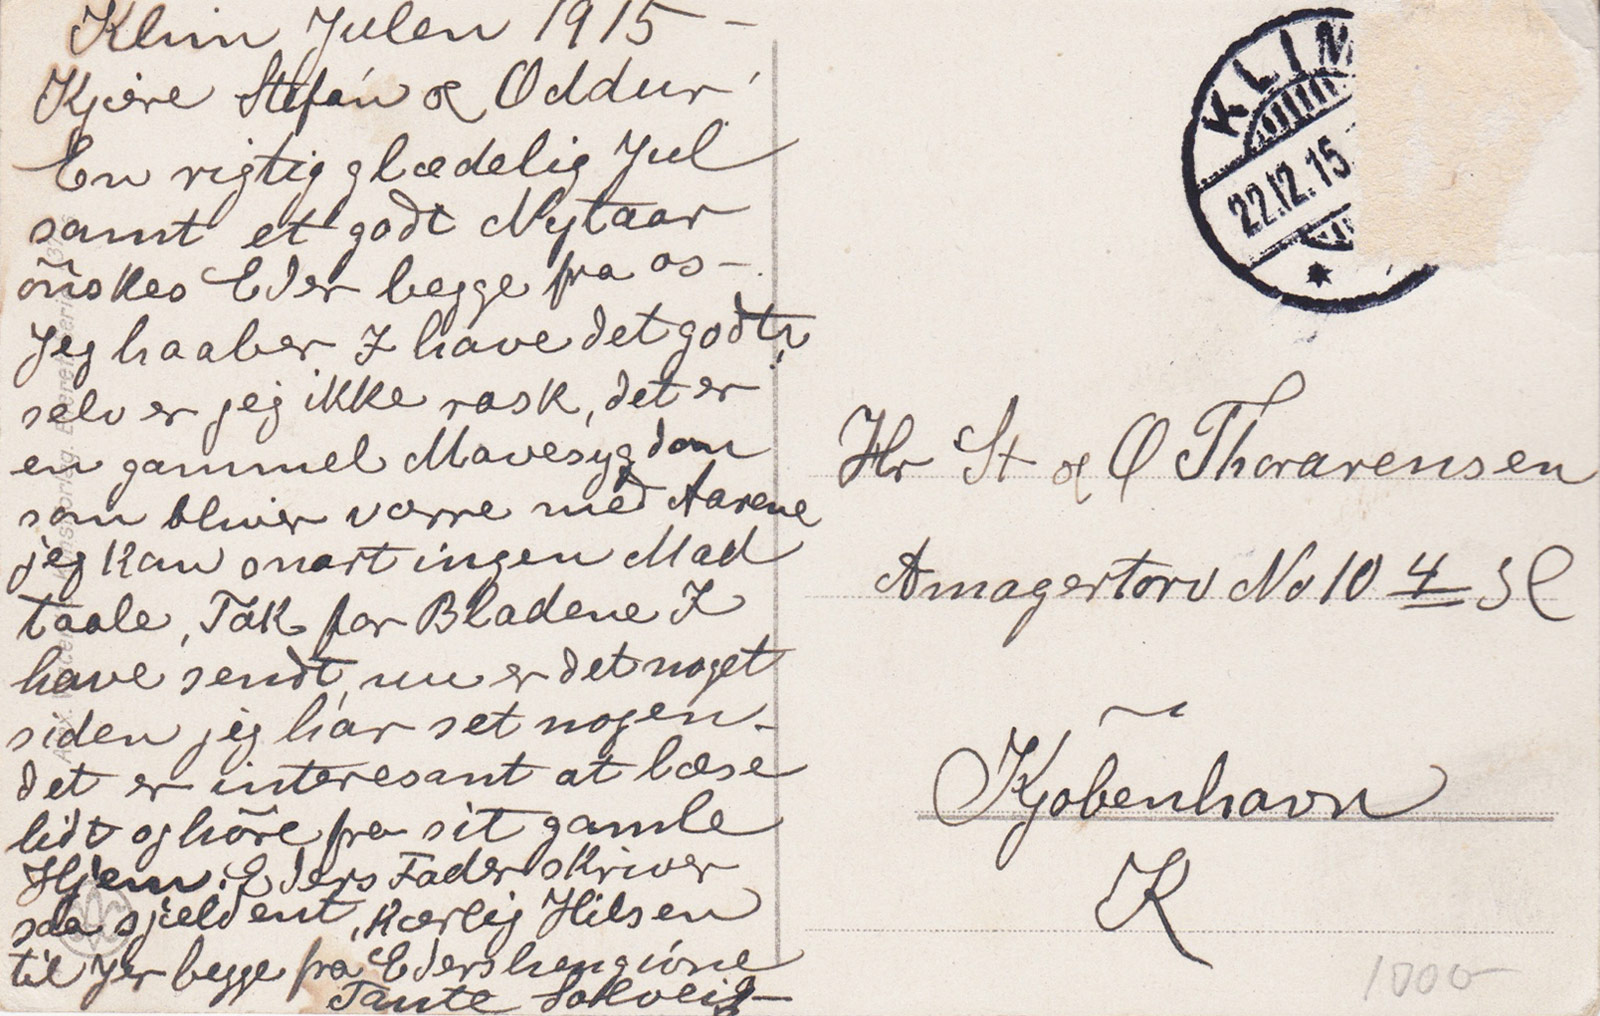 Klim Julen 1915 –
Kjære Stefán og Oddur
En rigtig glædelig Jul
samt et godt Nytaar
önskes Eder begge fra os –
Jeg haaber I have det godt,
selv er jeg ikke rask, det er
en gammel Mavesygdom
som bliver værre med Aarene
jeg kan snart ingen Mad
taale, Tak for Bladene I
have sendt, nu er det noget
siden jeg har set nogen –
det er interesant at læse
lidt og höre fra sit gamle
Hjem. Eders Fader skriver
saa sjeldent, kærlig Hilsen
til Jer begge fra Eders hengivne
Tante Solveig –
KLIM
22.12.15
Hr St og O Thorarensen
Amagertorv No 10 4
Kjøbenhavn
K
1000 –